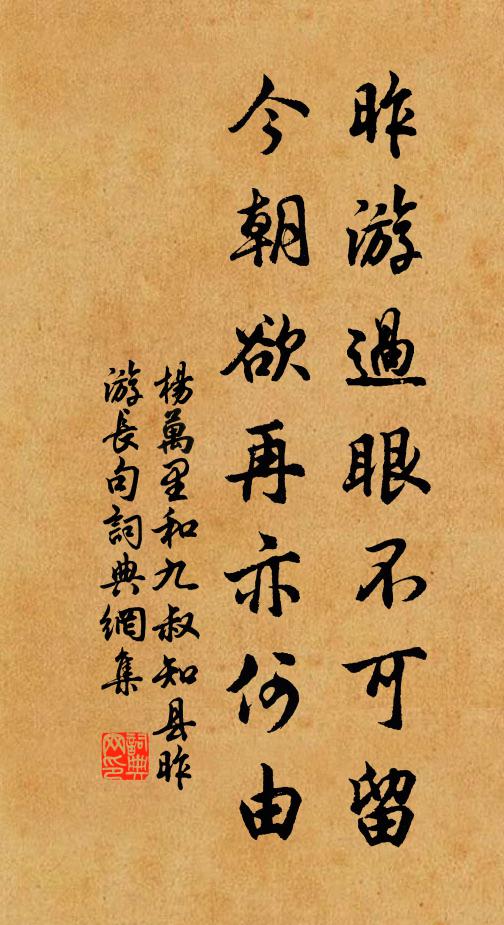 昨游過眼不可留
今朝欲再亦何由
楊萬里和九叔知县昨
游長句詞典網集
詞典
网印